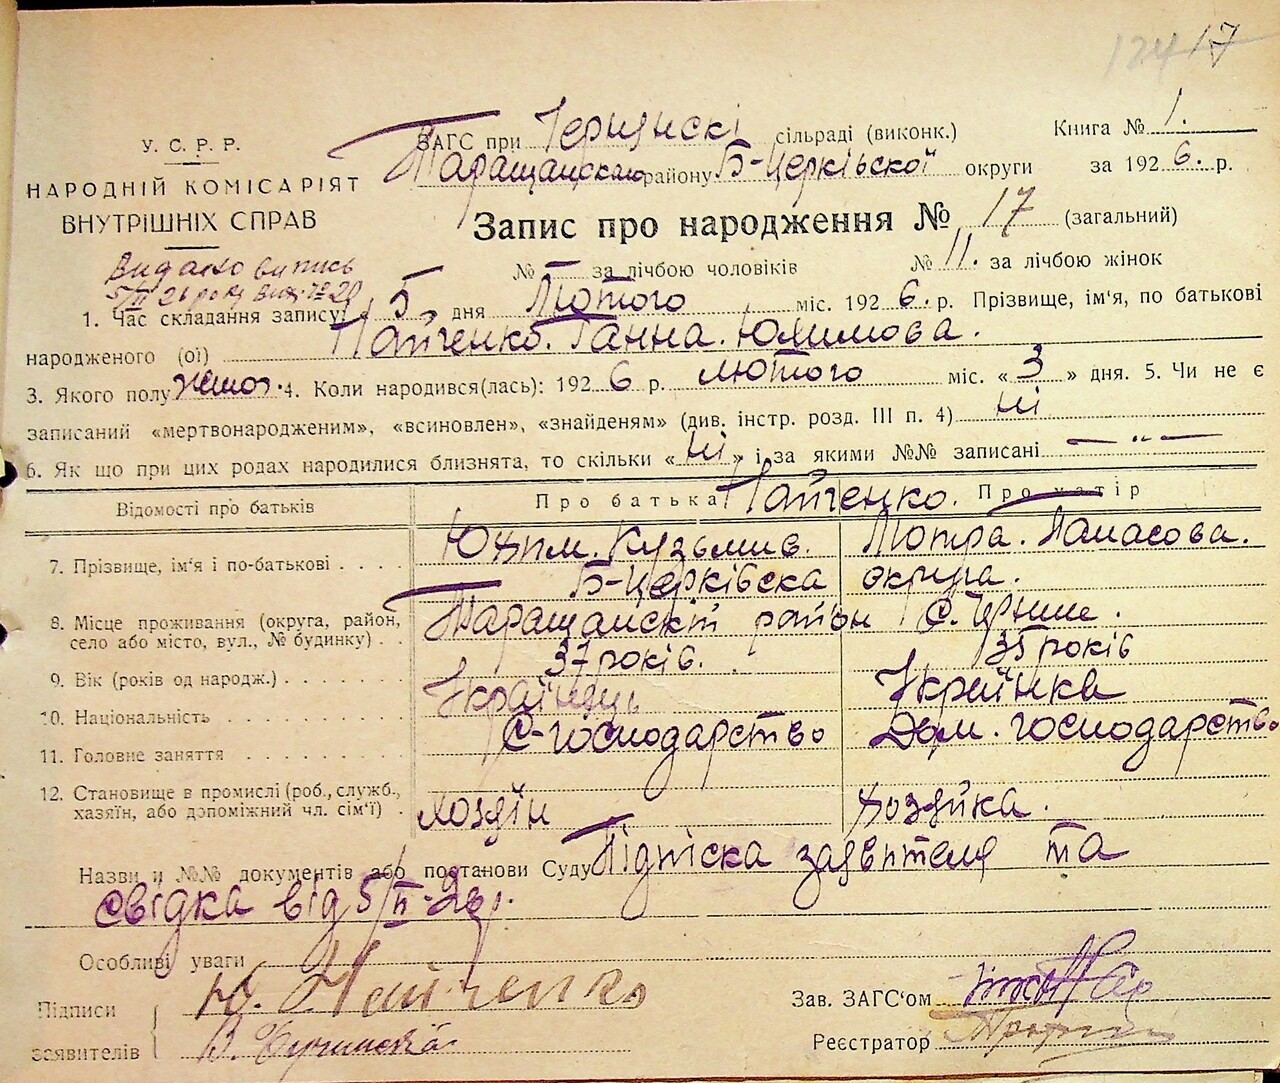 17
У. С. Р. Р.
НАРОДНІЙ КОМІСАРІЯТ
ВНУТРІШНІХ СПРАВ
ЗАГС при сільраді (виконк.) Книга № 1.
Таращанского району Б-Церківської округи за 1926. р.
Запис про народження № 17 (загальний)
№ — за лічбою чоловіків № 11. за лічбою жінок
Видано випись
5/II 26 року
1. Час складання запису: « 5 дня Лютого міс. 1926. р. Прізвище, ім'я, по батькові
народженого (ої) Ганна. Юхимова.
3. Якого полу жіноч. 4. Коли народився(лась): 1926 р. лютого міс. « 3 » дня. 5. Чи не є
записаний «мертвонародженим», «всиновлен», «знайденям» (див. інстр. розд. III п. 4) ні
6. Як що при цих родах народилися близнята, то скільки « ні » і за якими №№ записані — „ —
Відомості про батьків Про батька Про матір
7. Прізвище, ім'я і по-батькові . . . . Юхим. Кузьмив. Панасова.
Б-Церківска округа.
8. Місце проживання (округа, район, село або місто, вул., № будинку) . . Таращанскій район С.
9. Вік (років од народж.) . . . . . . . . 37 років. 35 років
10. Національність . . . . . . . . . . Українець Українка
11. Головне заняття . . . . . . . . . С-господарство Дом. господарство
12. Становище в промислі (роб., служб., хазяїн, або допоміжний чл. сім'ї) . хозяїн хозяйка.
Назви и №№ документів або постанови Суду Підписка заявителя та
свідка від 5/II-26 р.
Особливі уваги
Підписи Ю. Зав. ЗАГС'ом
заявителів В. Реєстратор